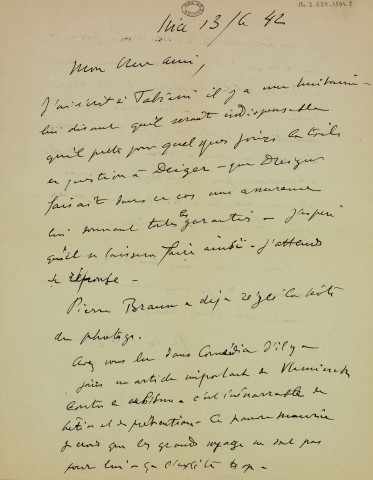 Nice 13/6 42
Mon cher ami,
J'ai écrit à Fabiani il y a une huitaine
lui disant qu'il serait indispensable
qu'il prête pour quelques jours la toile
en question à - que
faisait dans ce cas une assurance
lui donnant toutes les garanties - J'espère
qu'il se laissera faire ainsi - j'attends
sa réponse -
Pierre Braun a déjà réglé la note
du photogr.
Avez vous lu dans Comœdia d'il y a
jours un article important de Vlaminck
contre c'est inénarrable de
bêtise et de prétention - Ce pauvre Maurice
Je crois que les grands voyages ne sont pas
pour lui - ça l'excite trop -